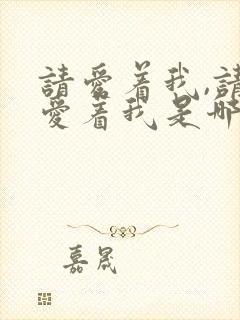 請愛着我,請
愛着我是哪
嘉晟